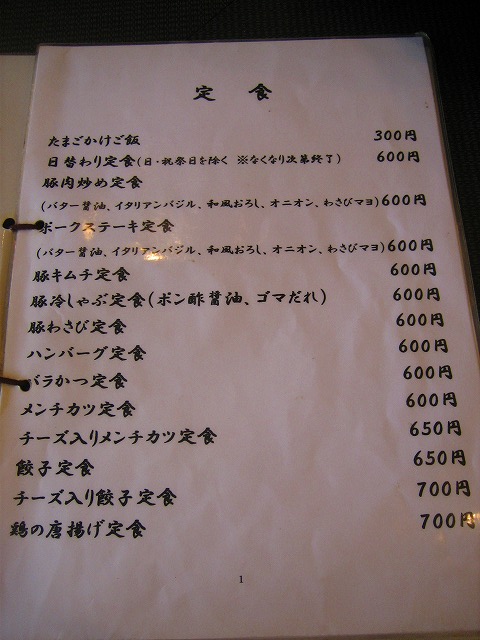 定食
たまごかけご飯 300円
日替わり定食(日・祝祭日を除く ※なくなり次第終了) 600円
豚肉炒め定食
(バター醤油、イタリアンバジル、和風おろし、オニオン、わさびマヨ)600円
ポークステーキ定食
(バター醤油、イタリアンバジル、和風おろし、オニオン、わさびマヨ)600円
豚キムチ定食 600円
豚冷しゃぶ定食(ポン酢醤油、ゴマだれ) 600円
豚わさび定食 600円
ハンバーグ定食 600円
バラかつ定食 600円
メンチカツ定食 600円
チーズ入りメンチカツ定食 650円
餃子定食 650円
チーズ入り餃子定食 700円
鶏の唐揚げ定食 700円
1